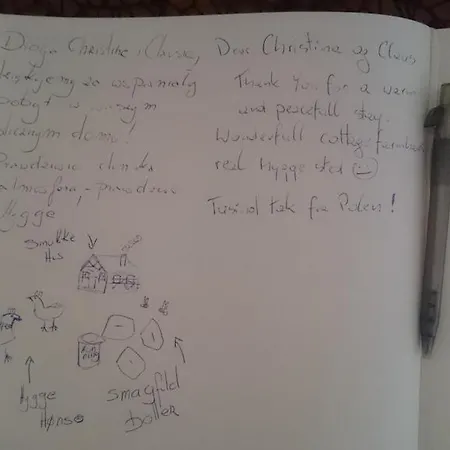 Droga Christine i Clausie,
dziękujemy za wspaniały
pobyt w waszym
ślicznym domu!
Prawdziwie duńska
atmosfera, prawdziwe
Hygge
Dear Christina og Claus
Thank You for a warm
and peacefull stay.
Wonderfull cottage farmhouse
real Hygge sted
Tusind tak fra Polen!
Smukke
Hus
Hygge
Hønse
Smagfuld
Boller